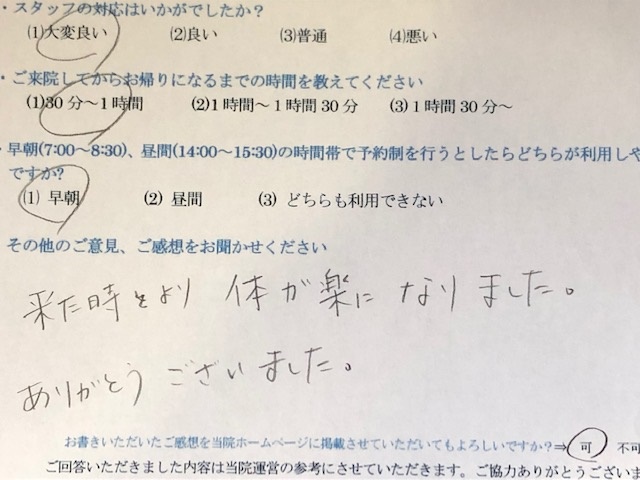 ・スタッフの対応はいかがでしたか？
(1)大変良い (2)良い (3)普通 (4)悪い
・ご来院してからお帰りになるまでの時間を教えてください
(1)30分～1時間 (2)1時間～1時間30分 (3)1時間30分～
・早朝(7:00～8:30)、昼間(14:00～15:30)の時間帯で予約制を行うとしたらどちらが利用しや
ですか?
(1) 早朝 (2) 昼間 (3) どちらも利用できない
その他のご意見、ご感想をお聞かせください
来た時より 体が楽に なりました。
ありがとう ございました。
お書きいただいたご感想を当院ホームページに掲載させていただいてもよろしいですか？⇒ 可 不可
ご回答いただきました内容は当院運営の参考にさせていただきます。ご協力ありがとうございま